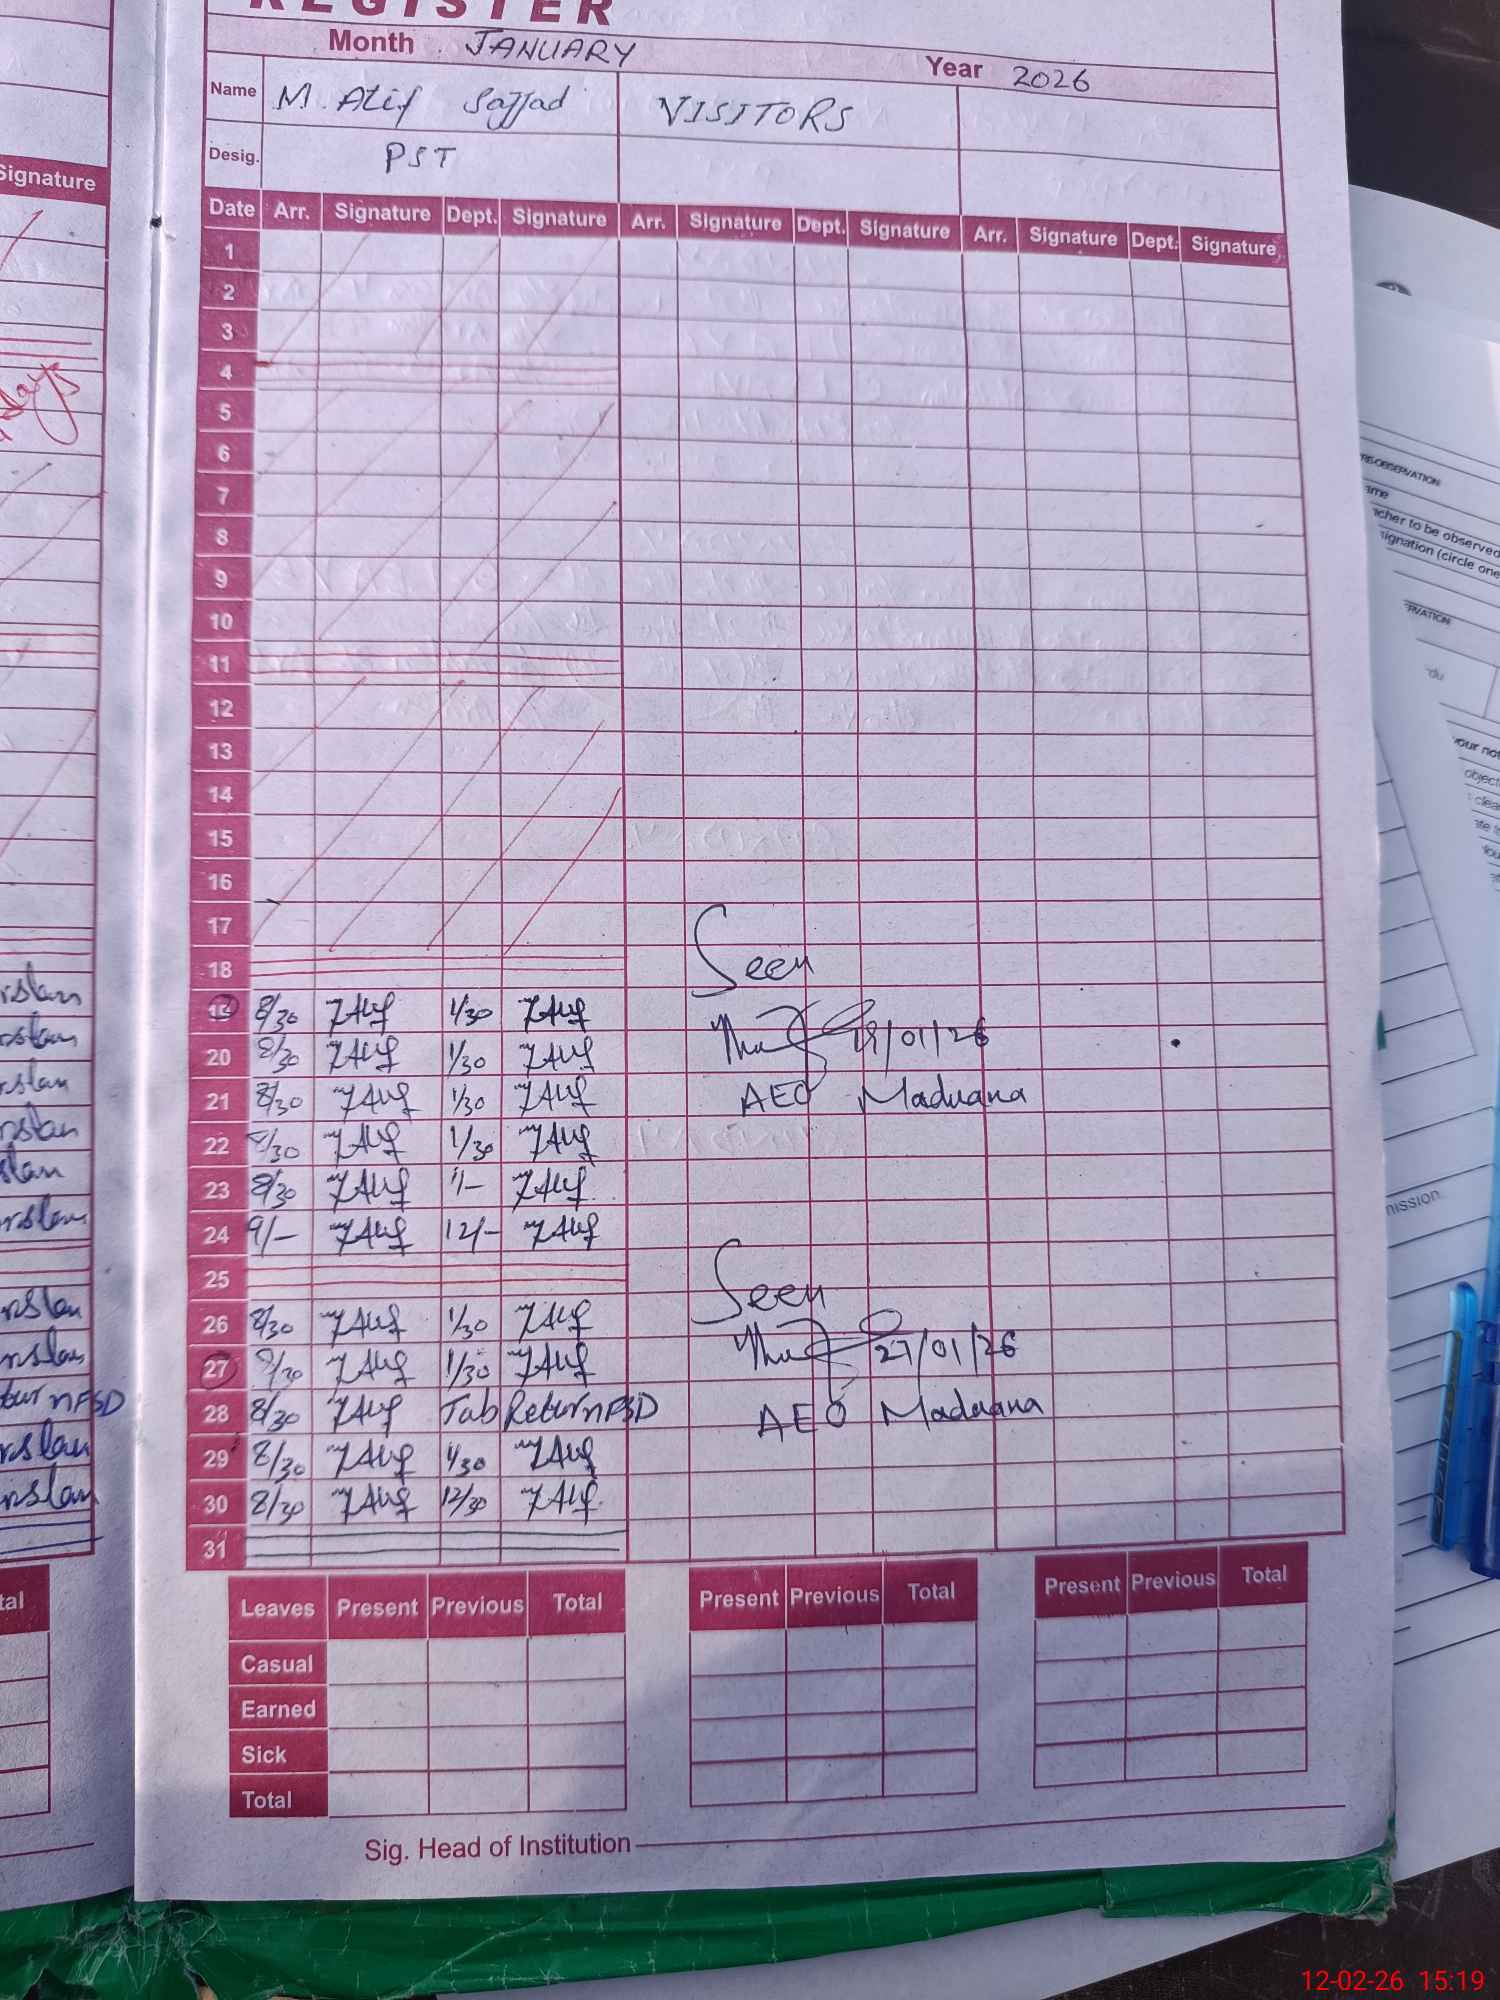 REGISTER
Month JANUARY Year 2026
Name M. Atif Sajjad VISITORS
Desig. PST
Date Arr. Signature Dept. Signature Arr. Signature Dept. Signature Arr. Signature Dept. Signature
1
2
3
4
5
6
7
8
9
10
11
12
13
14
15
16
17
Seen
18
19 8/30 1/30 19/01/26
20 8/30 1/30
21 8/30 1/30 AEO Maduana
22 8/30 1/30
23 8/30 1/-
24 9/- 12/-
25
Seen
26 8/30 1/30
27 8/30 1/30 27/01/26
28 8/30 Tab Return FSD AEO Maduana
29 8/30 1/30
30 8/30 12/30
31
Leaves Present Previous Total Present Previous Total Present Previous Total
Casual
Earned
Sick
Total
Sig. Head of Institution
Signature
days
rslan
rslan
rslan
rslan
slan
rslan
rslan
rslan
turn FSD
rslan
rslan
tal
PRE-OBSERVATION
ame
acher to be observed
signation (circle one
RVATION
your not
object
clea
mission
12-02-26 15:19